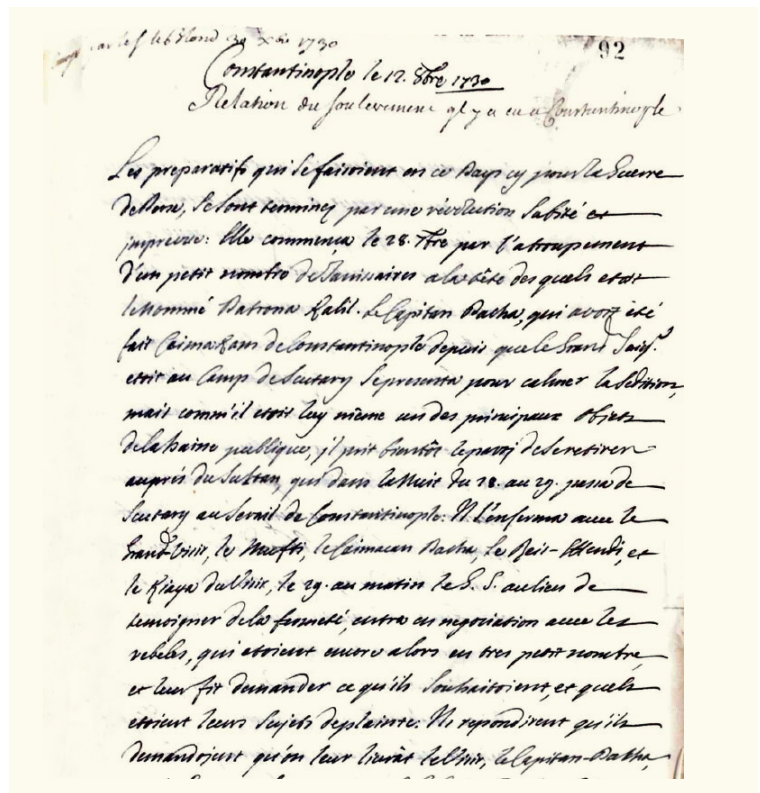 par le f. le blond 30 Xbre 1730
92
Constantinople le 12. 8bre 1730
Relation du soulevement ql y a eu a Constantinople
Les preparatifs qui se faisoient en ce Pays cy pour la Guerre
de Perse, se sont terminez par une révolution subite et
impreveue: Elle commença le 28. 7bre par l'atroupement
d'un petit nombre de Janissaires a la tête des quels etoit
le nommé Patrona Kalil. Le Capitan Pacha, qui avoit été
fait Caimakam de Constantinople depuis que le Grand Seigr.
etoit au Camp de Scutary se presenta pour calmer la Sédition,
mais comm'il etoit luy même un des principaux objets
de la haine publique, il prit bientôt le party de se retirer
auprés du Sultan, qui dans la Nuit du 28. au 29. passa de
Scutary au Serail de Constantinople: Il s'enferma avec le
Grand Visir, le Muefti, le Caimacan Pacha, Le Reis-Effendi, et
le Kiaya du Visir, le 29. au matin le G. S. au lieu de
temoigner de la fermeté, entra en negociation avec les
rebeles, qui etoient encore alors en tres petit nombre,
et leur fit demander ce qu'ils souhaitoient, et quels
etoient leurs sujets de plainte: Ils repondirent qu'ils
demandoient qu'on leur livrât le Visir, le Capitan-Pacha,